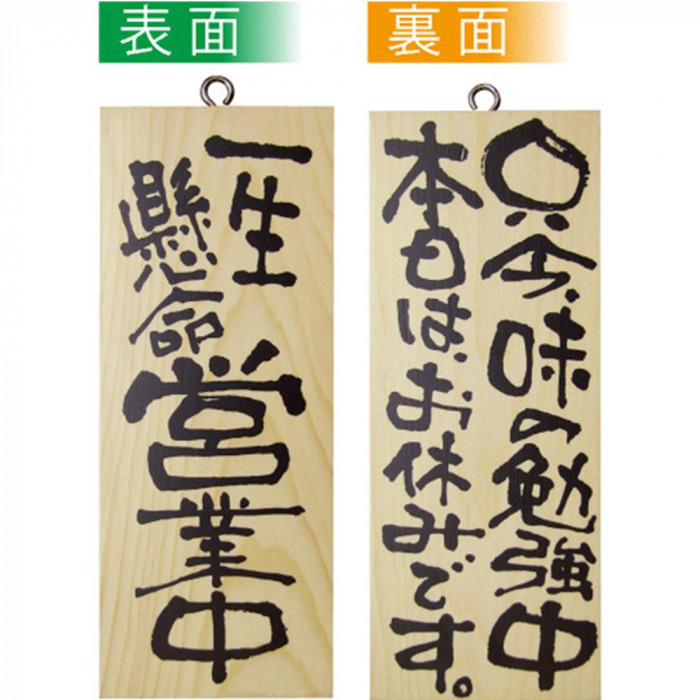 表面
一生
懸命
営業中
裏面
只今、味の勉強中
本日は、お休みです。